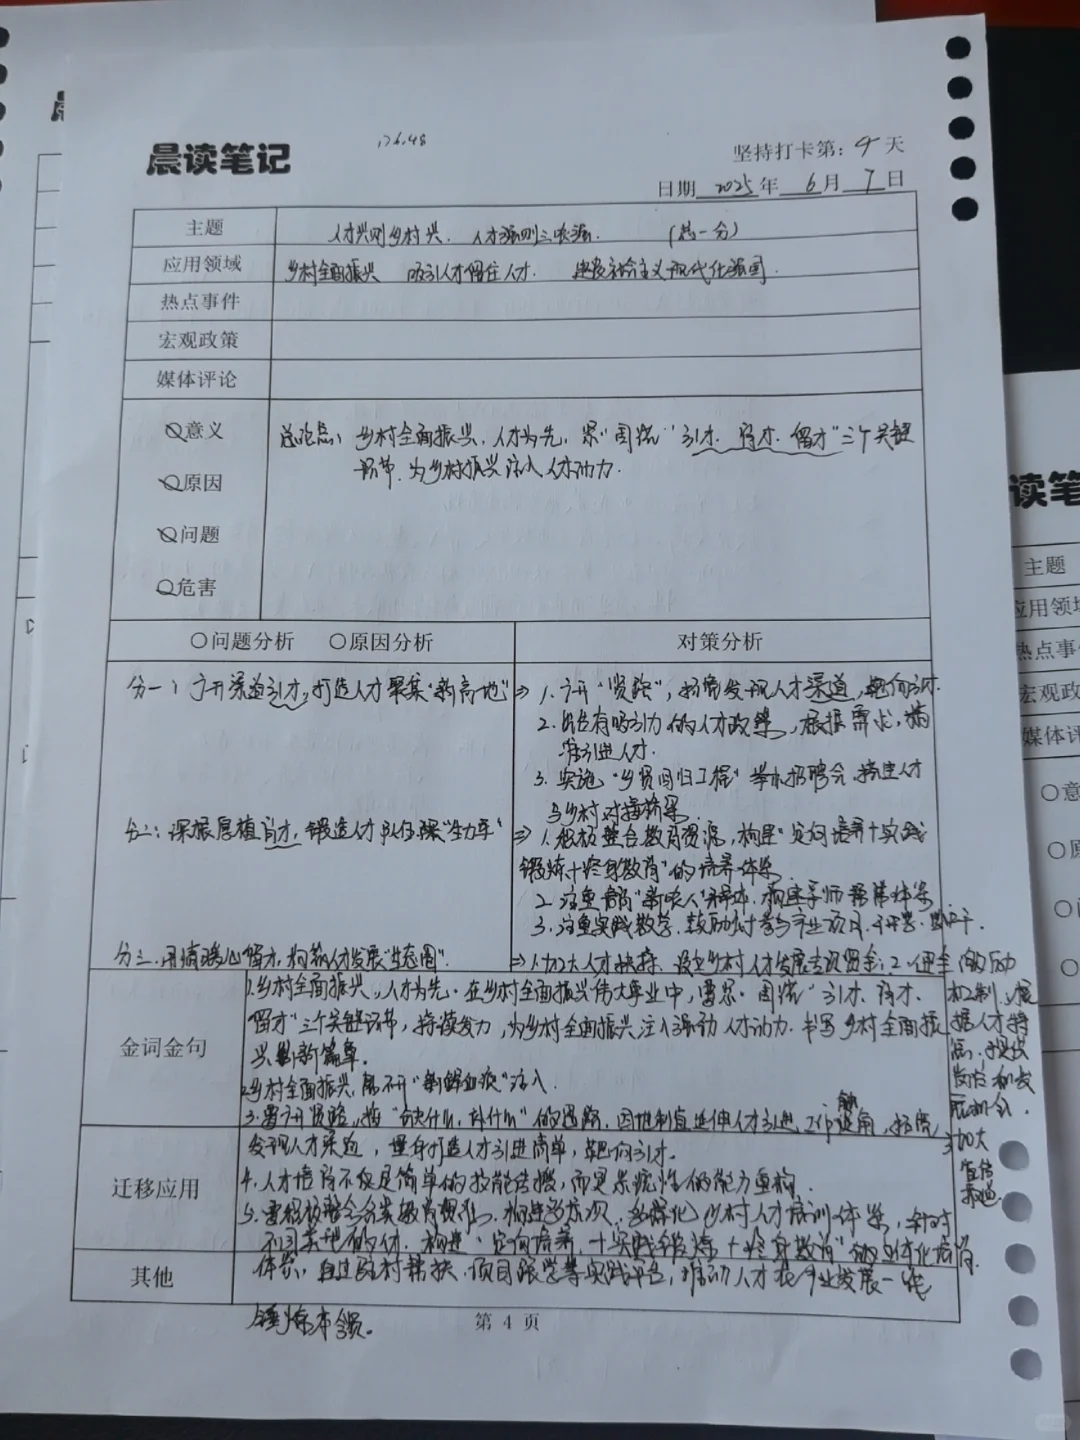 晨读笔记
坚持打卡第：4 天
日期 2025 年 6 月 7 日
主题 人才兴则乡村兴、人才强则三农强. （总一分）
应用领域 乡村全面振兴 吸引人才留住人才. 建设社会主义现代化强国.
热点事件
宏观政策
媒体评论
意义
原因
问题
危害
总论点：乡村全面振兴、人才为先，紧“围绕”引才、育才、留才”三个关键
环节、为乡村振兴注入人才动力.
○问题分析 ○原因分析 对策分析
分一：广开渠道引才，打造人才聚集“新高地”
⇒ 1. 广开“贤路”，拓宽发现人才渠道，靶向引才.
2. 出台有吸引力的人才政策，根据需求，精
准引进人才.
3. 实施“乡贤回归工程”举办招聘会、搭建人才
与乡村对接桥梁.
分二：深振厚植育才，锻造人才队伍强“生力军”
⇒ 1. 积极整合教育资源，构建“定向培养+实践
锻炼+终身教育”的培养体系
2. 注重青年“新农人”，构建导师帮带体系
3. 注重实践教学、鼓励村参与产业项目
分三、用情暖心留才，构筑人才发展“生态圈”.
⇒ 1. 加大人才扶持、设立乡村人才发展专项资金；2. 健全激励
机制，根
据人才特
点，提供
岗位和发
展机会.
3. 加大
宣传
金词金句
1. 乡村全面振兴，人才为先. 在乡村全面振兴伟大事业中，需紧“围绕”引才、育才、
留才”三个关键环节，持续发力，为乡村全面振兴注入强劲人才动力. 书写乡村全面振
兴崭新篇章.
2. 乡村全面振兴，离不开“新鲜血液”注入.
3. 要广开贤路，按“缺什么，补什么”的思路，因地制宜延伸人才引进工作触角，拓宽
发现人才渠道，量身打造人才引进简单，靶向引才.
迁移应用
4. 人才培育不仅是简单的技能传播，而是系统性的能力重构.
5. 要积极整合各类教育资源、构建多层次、多样化乡村人才培训体系，针对
不同类型的人才. 构建“定向培养+实践锻炼+终身教育”的立体化培育
其他
体系，通过驻村帮扶、项目跟学等实践平台，推动人才在产业发展一线
锤炼本领。
第 4 页
读笔
主题
应用领域
热点事件
宏观政
媒体评